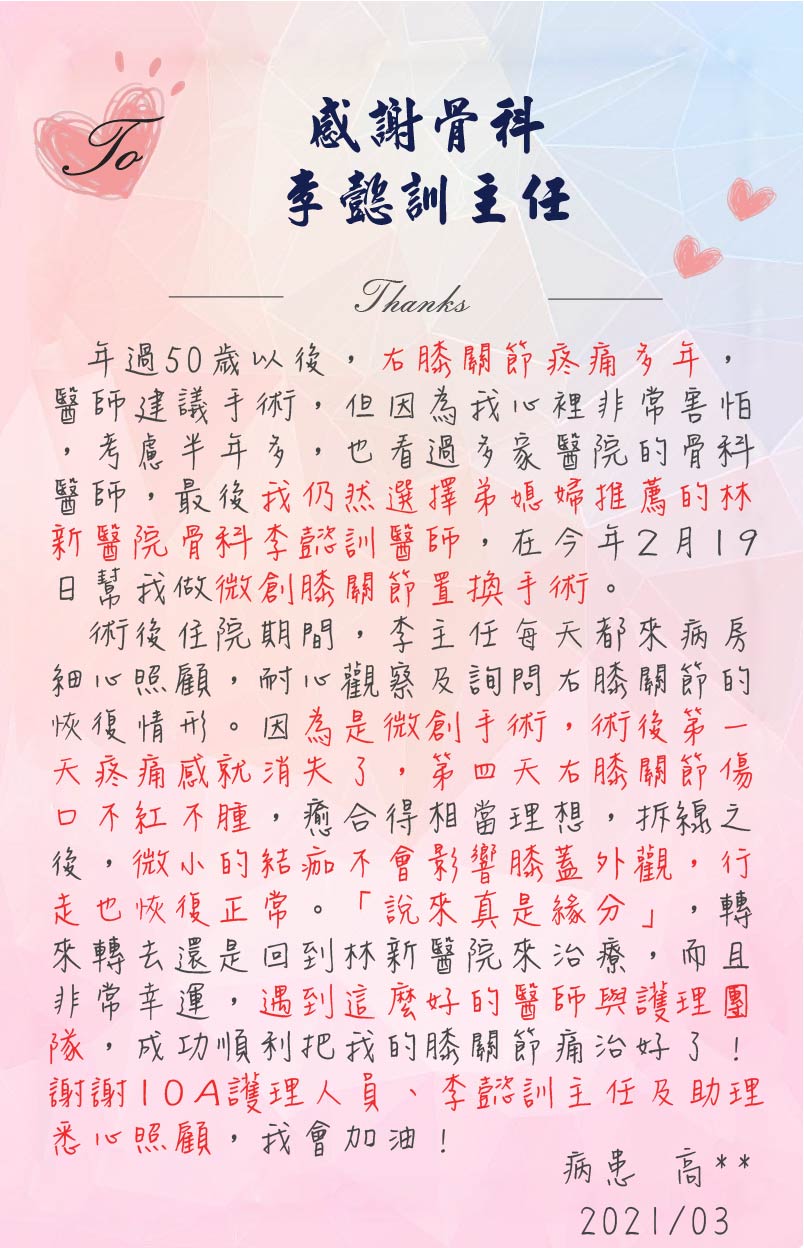 To
感謝骨科
李懿訓主任
Thanks
年過50歲以後，右膝關節疼痛多年，
醫師建議手術，但因為我心裡非常害怕
，考慮半年多，也看過多家醫院的骨科
醫師，最後我仍然選擇弟媳婦推薦的林
新醫院骨科李懿訓醫師，在今年2月19
日幫我做微創膝關節置換手術。
術後住院期間，李主任每天都來病房
細心照顧，耐心觀察及詢問右膝關節的
恢復情形。因為是微創手術，術後第一
天疼痛感就消失了，第四天右膝關節傷
口不紅不腫，癒合得相當理想，拆線之
後，微小的結痂不會影響膝蓋外觀，行
走也恢復正常。「說來真是緣分」，轉
來轉去還是回到林新醫院來治療，而且
非常幸運，遇到這麼好的醫師與護理團
隊，成功順利把我的膝關節痛治好了！
謝謝10A護理人員、李懿訓主任及助理
悉心照顧，我會加油！
病患 高**
2021/03